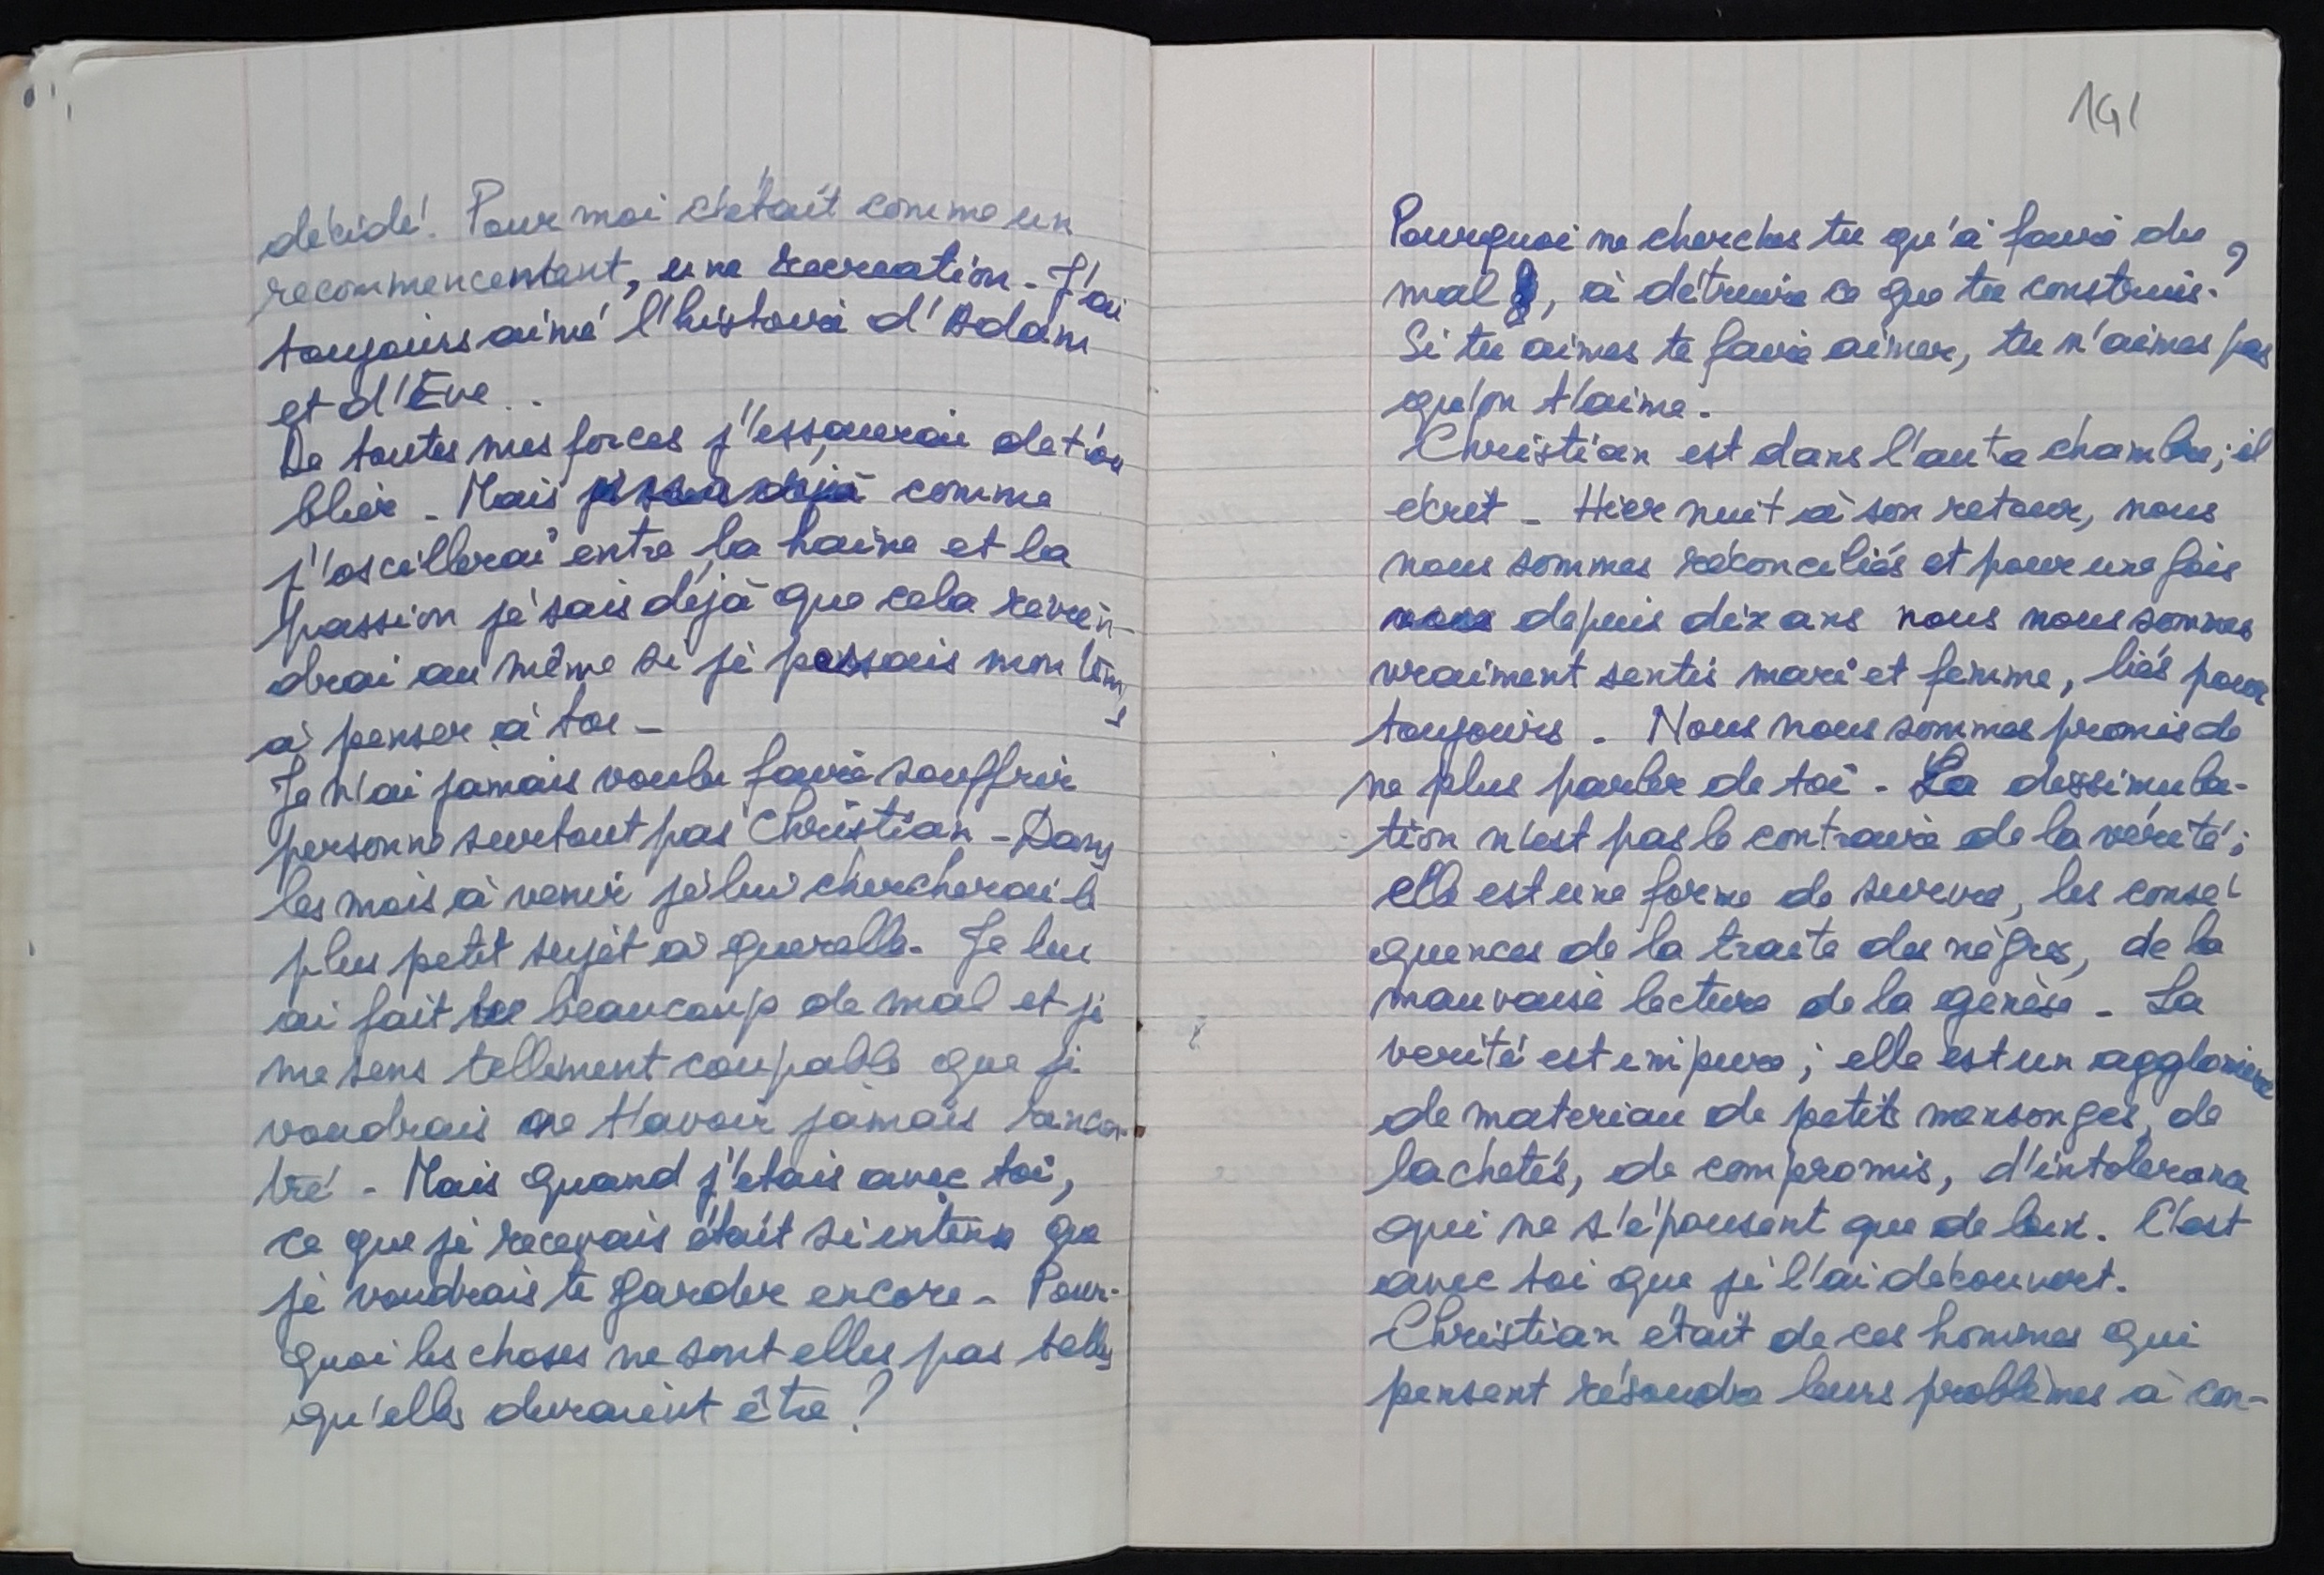 décidé. Pour moi c'était comme un
recommencement, une recreation - J'ai
toujours aimé l'histoire d'Adam
et d'Eve..
De toutes mes forces j'essaierai de t'ou
blier - Mais comme
j'oscillerai entre la haine et la
passion je sais déjà que cela revien-
drai au même si je passais mon tem
s
à penser à toi -
Je n'ai jamais voulu faire souffrir
personne surtout pas Christian - Dans
les mois à venir je lui chercherai le
plus petit sujet à querelle. Je lui
ai fait beaucoup de mal et je
me sens tellement coupable que je
voudrais ne t'avoir jamais rencon-
tré - Mais quand j'etais avec toi,
ce que je recevais était si intense que
je voudrais te garder encore - Pour-
quoi les choses ne sont elles pas telles
qu'elles devraient être ?
141
Pourquoi ne cherches tu qu'à faire du
mal, à détruire ce que tu construis ?
Si tu aimes te faire aimer, tu n'aimes pas
qu'on t'aime.
Christian est dans l'autre chambre ; il
écrit - Hier nuit à son retour, nous
nous sommes réconciliés et pour une fois
nous depuis dix ans nous nous sommes
vraiment sentis mari et femme, liés pour
toujours - Nous nous sommes promis de
ne plus parler de toi - La dissimula-
tion n'est pas le contraire de la vérité ;
elle est une forme de survie, les consé
quences de la traite des nègres, de la
mauvaise lecture de la genèse - La
verité est impure ; elle est un aggloméré
de materiau de petits mensonges, de
lachetés, de compromis, d'intolerance
qui ne s'épousent que de loin. C'est
avec toi que je l'ai découvert.
Christian était de ces hommes qui
pensent résoudre leurs problèmes à con-